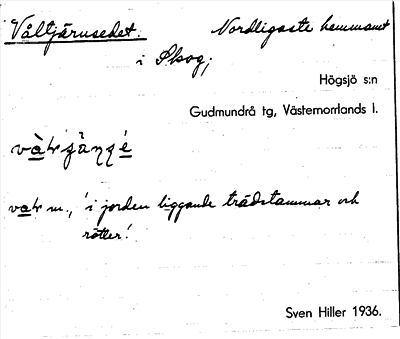 Nordligaste hemmanet
i Skog;
Högsjö s:n
Gudmundrå tg, Västernorrlands l.
m., 'i jorden liggande trädstammar och
rötter'.
Sven Hiller 1936.